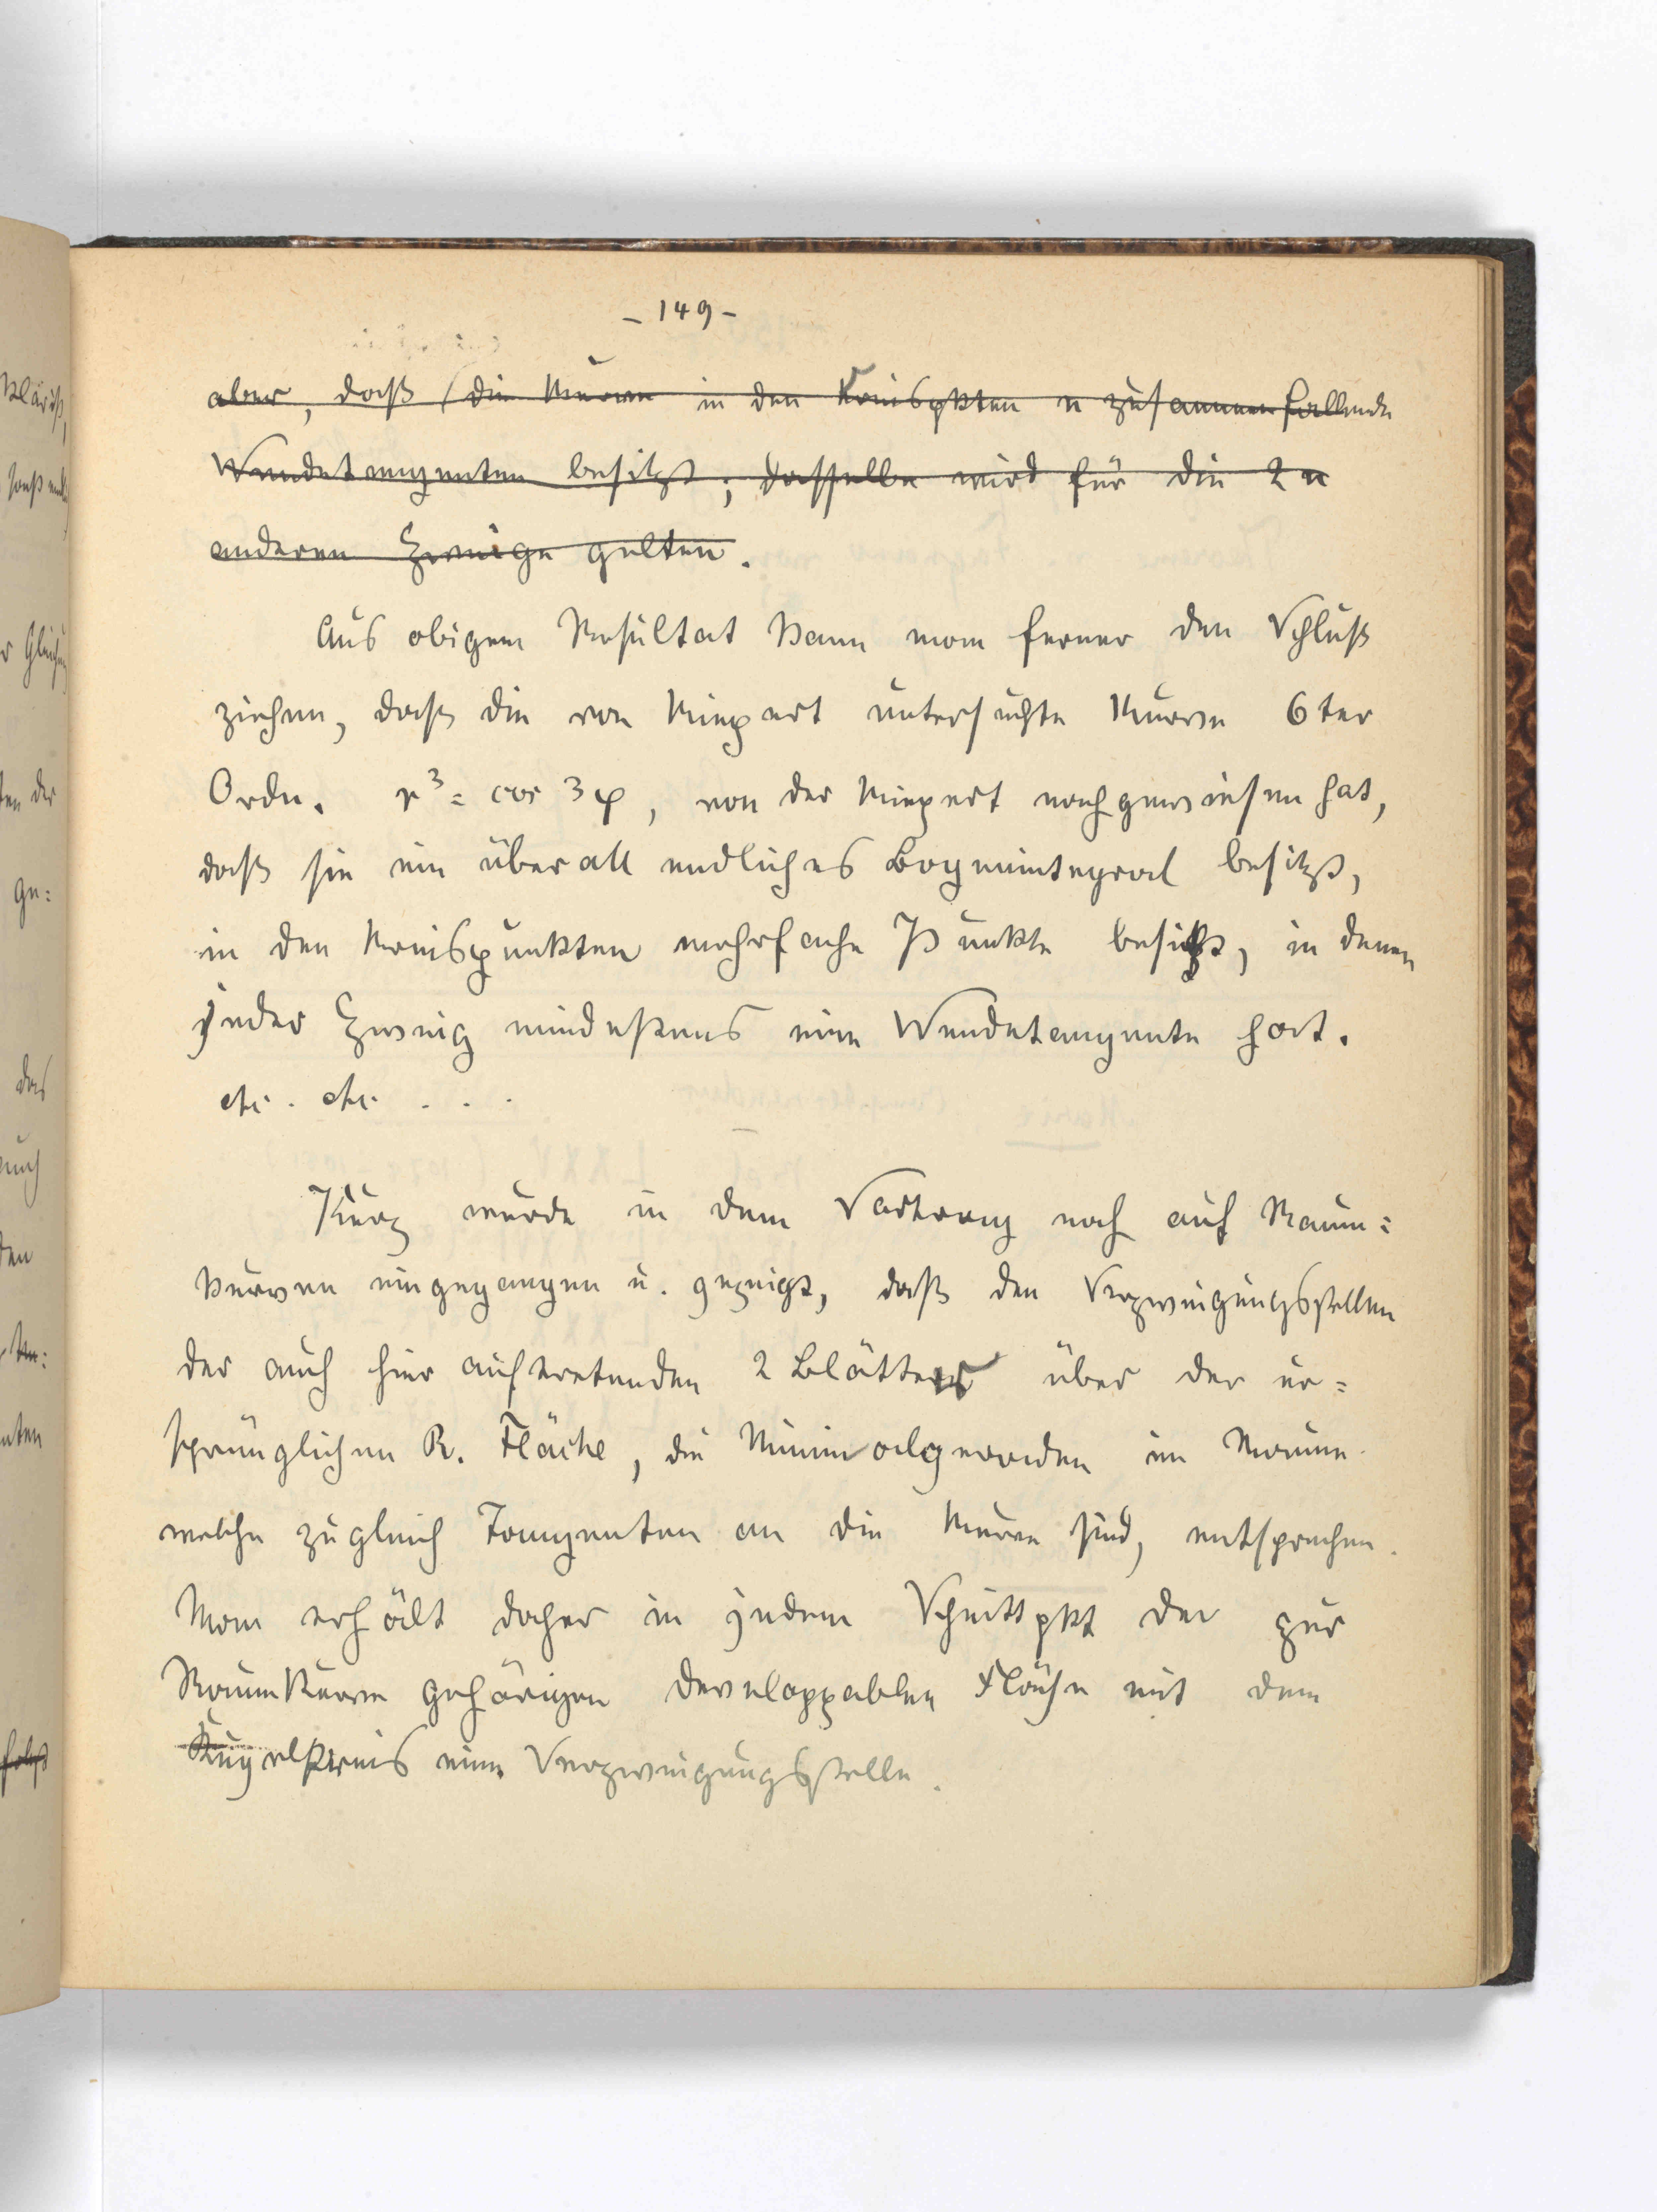 - 149 -
aber, daß die Kurve in den Kreispkten n zusammenfallende
Wendetangenten besitzt; dasselbe wird für die 2n
anderen Zweige gelten.
Aus obigem Resultat kann man ferner den Schluß
ziehen, daß die von Kiepert untersuchte Kurve 6ter
Ordn. r³ = cos 3φ, von der Kiepert nachgewiesen hat,
daß sie ein überall endliches Bogenintegral besitzt,
in den Kreispunkten mehrfache Punkte besitzt, in denen
jeder Zweig mindestens eine Wendetangente hat.
etc. etc. . . .
Kurz wurde in dem Vortrag noch auf Raum=
kurven eingegangen u. gezeigt, daß den Verzweigungsstellen
der auch hier auftretenden 2 Blätter über der ur=
sprünglichen R. Fläche, die Minimalgeraden im Raume
welche zugleich Tangenten an die Kurve sind, entsprechen.
Man erhält daher in jedem Schnittpkt der zur
Raumkurve gehörigen developpablen Fläche mit dem
Kugelkreis eine Verzweigungsstelle.